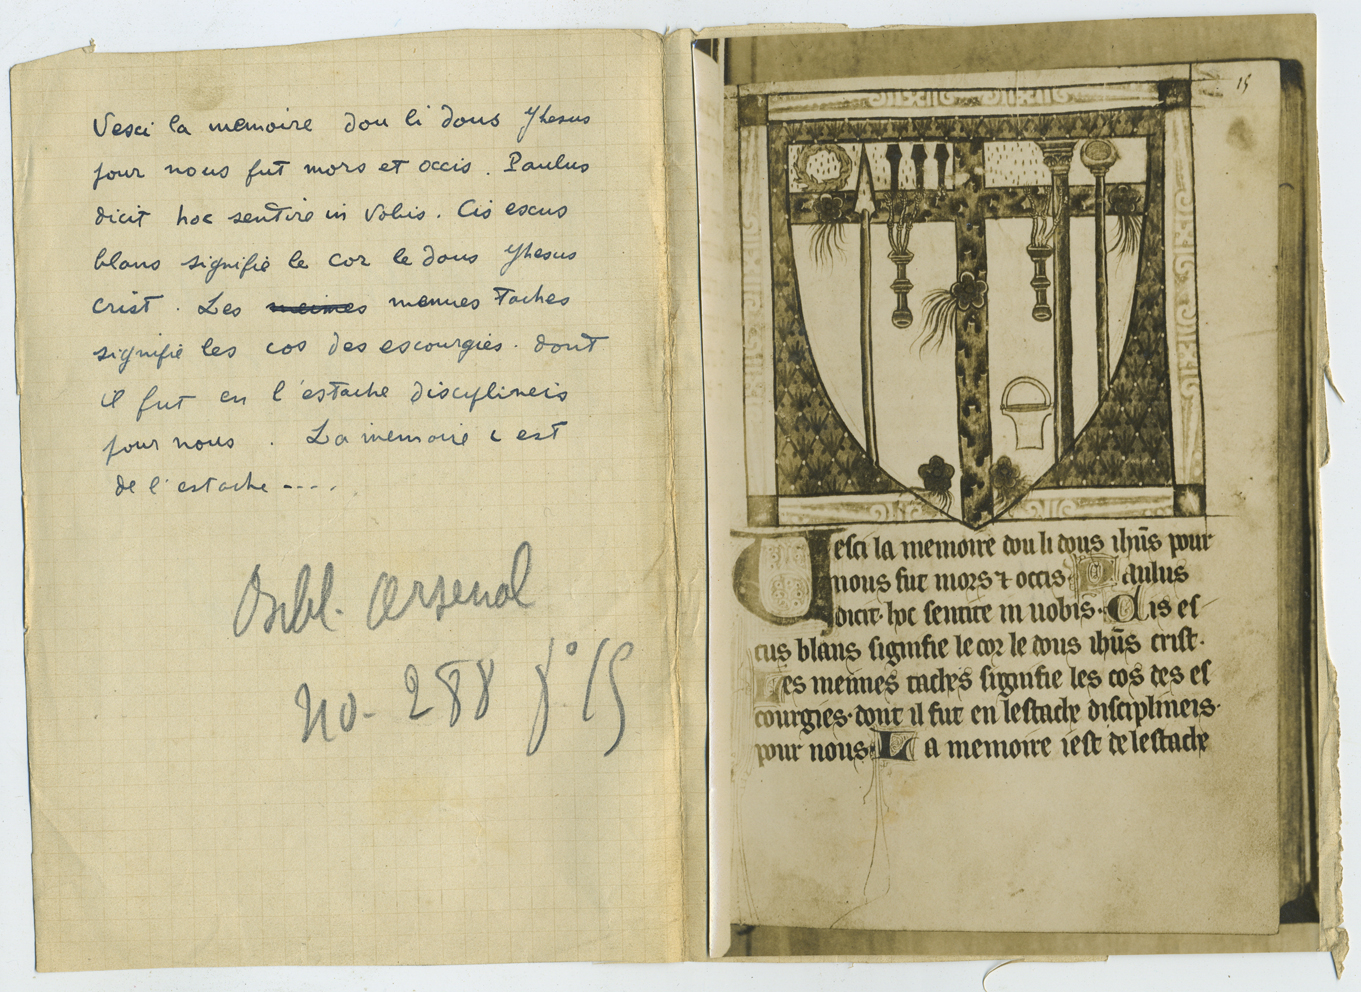 Vesci la memoire dou li dous Yhesus
pour nous fut mors et occis. Paulus
dicit hoc sentite in vobis. Cis escus
blans signifie le cor le dous Yhesus
crist. Les menues taches
signifie les cos des escourgies. dont
il fut en l'estache disciplineis
pour nous. La memoire c est
de l'estache ----.
Bibl. Arsenal
no. 288 fº 15
15
Vesci la memoire dou li dous ihũs pour
nous fut mors ⁊ occis. Paulus
dicit. hoc sentite in uobis. Cis es
cus blans signifie le cor le dous ihũs crist.
Les menues taches signifie les cos des es
courgies. dont il fut en lestache disciplineis.
pour nous. La memoire iest de lestache